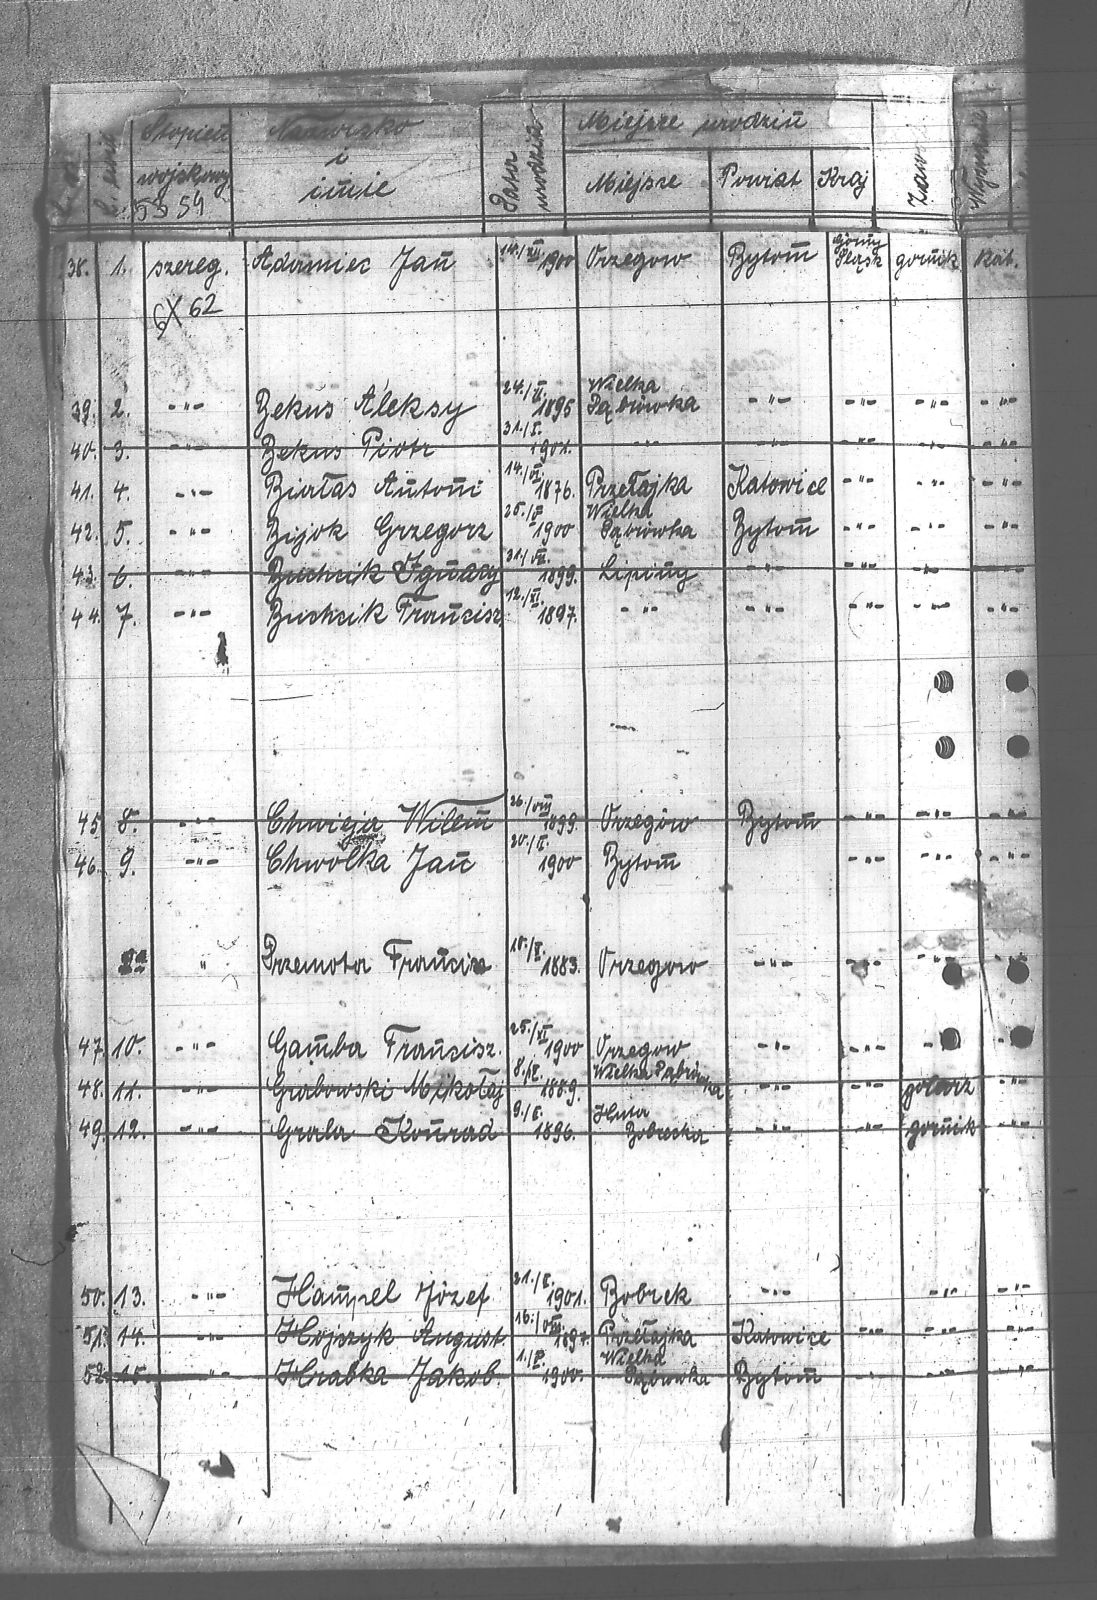 Stopień Nazwisko Data Miejsce urodzin
wojskowy i urodzin Miejsce Powiat Kraj
55 54 imie
38. 1. szereg. Adamiec Jan 1900 Orzegow Bytom Górny Śląsk gornik kat.
6X 62
39. 2. -"- Bekus Aleksy 24./VI. 1895 Wielka Dąbrówka -"- -"- -"- -"-
40. 3. -"- Bekus Piotr 31./I. 1901. -"- -"- -"- -"- -"-
41. 4. -"- Biallas Antoni 14./VI. 1876. Przełajka Katowice -"- -"- -"-
42. 5. -"- Bijok Grzegorz 25./V 1900 Wielka Dąbrówka Bytom -"- -"- -"-
43. 6. -"- Buchcik Ignacy 31./VII. 1899. Lipiny -"- -"- -"-
44. 7. -"- Buchcik Francisz. 12./XI. 1897. -"- -"- -"- -"- -"-
45 8. -"- Chwieja Wilem 26./VIII 1899. Orzegów Bytom -"- -"- -"-
46. 9. -"- Chwolka Jan 20./II. 1900 Bytom -"- -"- -"-
" Przemota Francisz 10./X. 1883. Orzegow -"- -"- -"-
47. 10. -"- Gamba Francisz. 25./XI 1900 Orzegow -"- -"- -"-
48. 11. -"- Grabowski Mikołaj 8./IX. 1889. Wielka Dąbrówka -"- -"- golarz -"-
49. 12. -"- Grala Konrad 9./I. 1896. Huta Bobrecka -"- -"- gornik -"-
50. 13. -"- Hampel Józef 21./I. 1901. Bobrek -"- -"- -"-
51. 14. -"- Hojszyk August 16./VIII. 1897. Przełajka Katowice -"- -"- -"-
52. 15. -"- Hrabka Jakob. 1./IV. 1900. Wielka Dąbrowka Bytom -"- -"- -"-